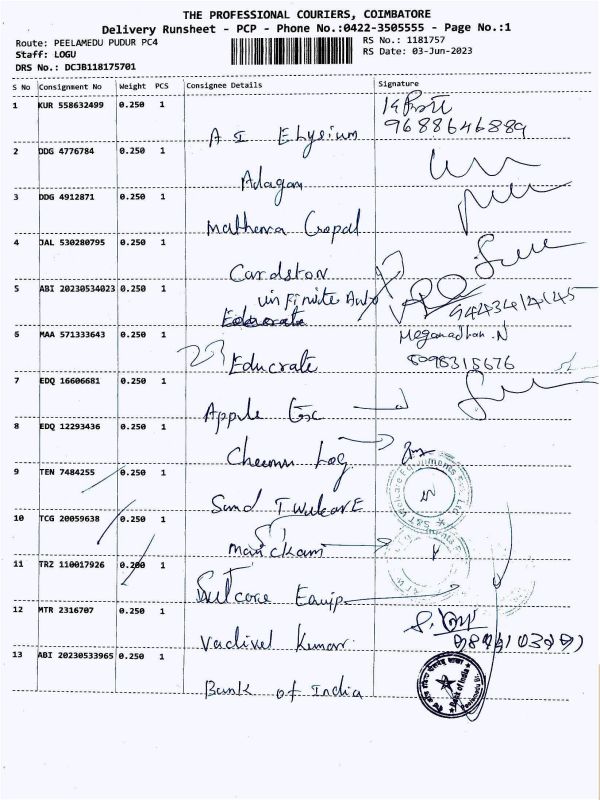 THE PROFESSIONAL COURIERS, COIMBATORE
Delivery Runsheet - PCP - Phone No.:0422-3505555 - Page No.:1
Route: PEELAMEDU PUDUR PC4 RS No.: 1181757
Staff: LOGU RS Date: 03-Jun-2023
DRS No.: DCJB118175701
S No Consignment No Weight PCS Consignee Details Signature
1 KUR 558632499 0.250 1
9688646889
A I Elysium
2 DDG 4776784 0.250 1
Adagan
3 DDG 4912871 0.250 1
Mathena Gopal
4 JAL 530280795 0.250 1
Cardston
5 ABI 20230534023 0.250 1
vinFinite Auto
6 MAA 571333643 0.250 1 Meganadhan.N
8098315676
Educrate
7 EDQ 16606681 0.250 1
Apple
8 EDQ 12293436 0.250 1
9 TEN 7484255 0.250 1
10 TCG 20059638 0.250 1
Manickam
11 TRZ 110017926 0.200 1
Equip
12 MTR 2316707 0.250 1
Vadivel Kumar
13 ABI 20230533965 0.250 1
Bank of India